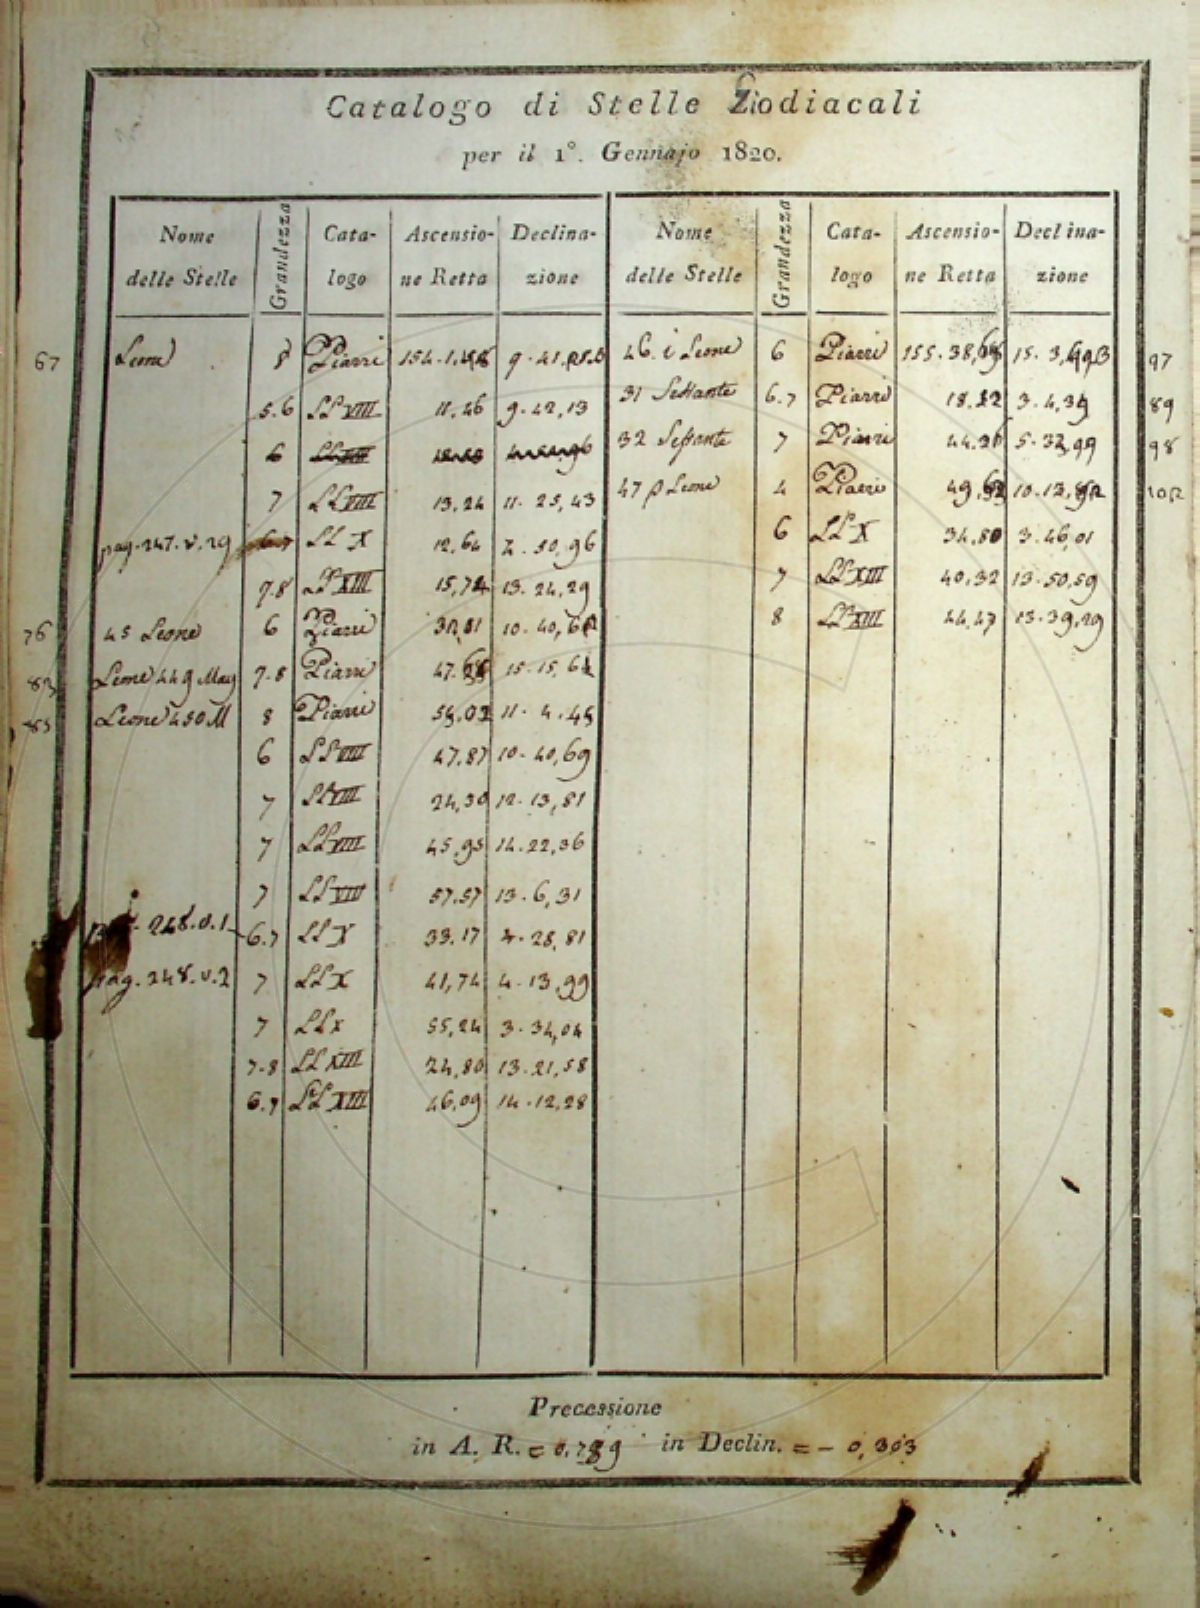 Catalogo di Stelle Zodiacali
per il 1°. Gennajo 1820.
Nome delle Stelle Grandezza Cata-logo Ascensio-ne Retta Declina-zione Nome delle Stelle Grandezza Cata-logo Ascensio-ne Retta Declina-zione
67 Leone 8 Piazzi 154.1, 9.41, 46.i Leone 6 Piazzi 155.38, 15.3, 97
5.6 LL VIII 11,46 9.42,13 31 Sestante 6.7 Piazzi 18.22 3.4,39 89
6 32 Sestante 7 Piazzi 44.26 5.32,99 98
7 LL VIII 13,24 11.25,43 47 ρ Leone 4 Piazzi 49, 10.12, 102
pag.247.v.29 6.7 LL X 12,64 2.50,96 6 LL X 34,80 3.46,01
7.8 LL XIII 15,74 13.24,29 7 LL XIII 40,32 13.50,59
76 45 Leone 6 Piazzi 30,81 10.40, 8 LL XIII 44,47 13.39,29
Leone 449 May 7.8 Piazzi 47. 15.15,64
85 Leone 450 M 8 Piazzi 11.4.45
6 LL VIII 47,87 10.40,69
7 LL VIII 24,30 12.13,81
7 LL VIII 45,95 14.22,36
7 LL VIII 57.57 13.6,31
248.v.1 6.7 LL X 33.17 4.28,81
pag.248.v.2 7 LL X 41,74 4.13,99
7 LL X 55,24 3.34,04
7.8 LL XIII 24,80 13.21,58
6.7 LL XIII 46,09 14.12,28
Precessione
in A. R. = 0,789 in Declin. = - 0,303